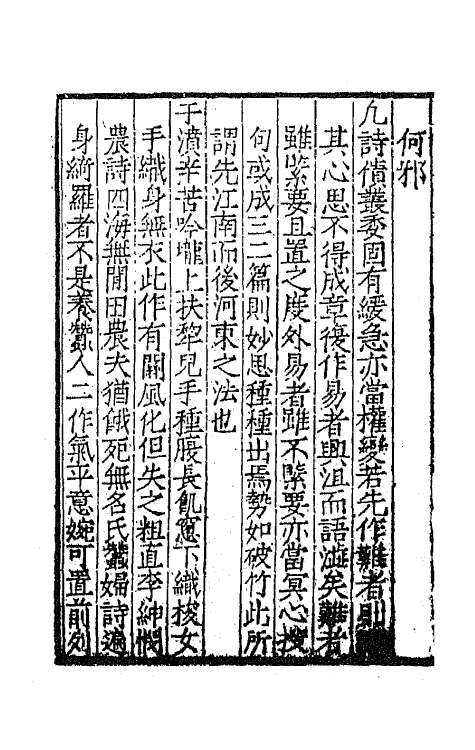 何邪
凡詩債叢委固有緩急亦當權變若先作難者則
其心思不得成章復作易者興沮而語澁矣難者
雖緊要且置之度外易者雖不緊要亦當冥心搜
句或成三二篇則妙思種種出焉勢如破竹此所
謂先江南而後河東之法也
于濆辛苦吟壠上扶犂兒手種腹長飢窓下織梭女
手織身無衣此作有關風化但失之粗直李紳憫
農詩四海無閒田農夫猶餓死無名氏蠶婦詩遍
身綺羅者不是養蠶人二作氣平意婉可置前列